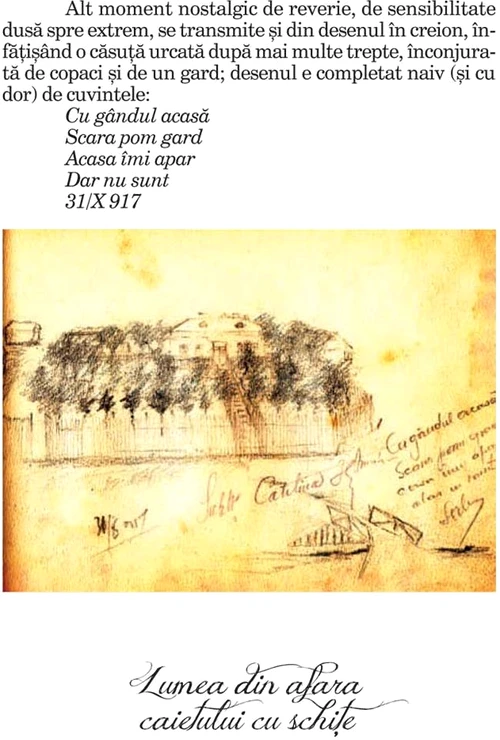 Alt moment nostalgic de reverie, de sensibilitate
dusă spre extrem, se transmite și din desenul în creion, în-
fățișând o căsuță urcată după mai multe trepte, înconjura-
tă de copaci și de un gard; desenul e completat naiv (și cu
dor) de cuvintele:
Cu gândul acasă
Scara pom gard
Acasa îmi apar
Dar nu sunt
31/X 917
Cu gândul acasă
Scara pom
Catilina
Lumea din afara
caietului cu schițe